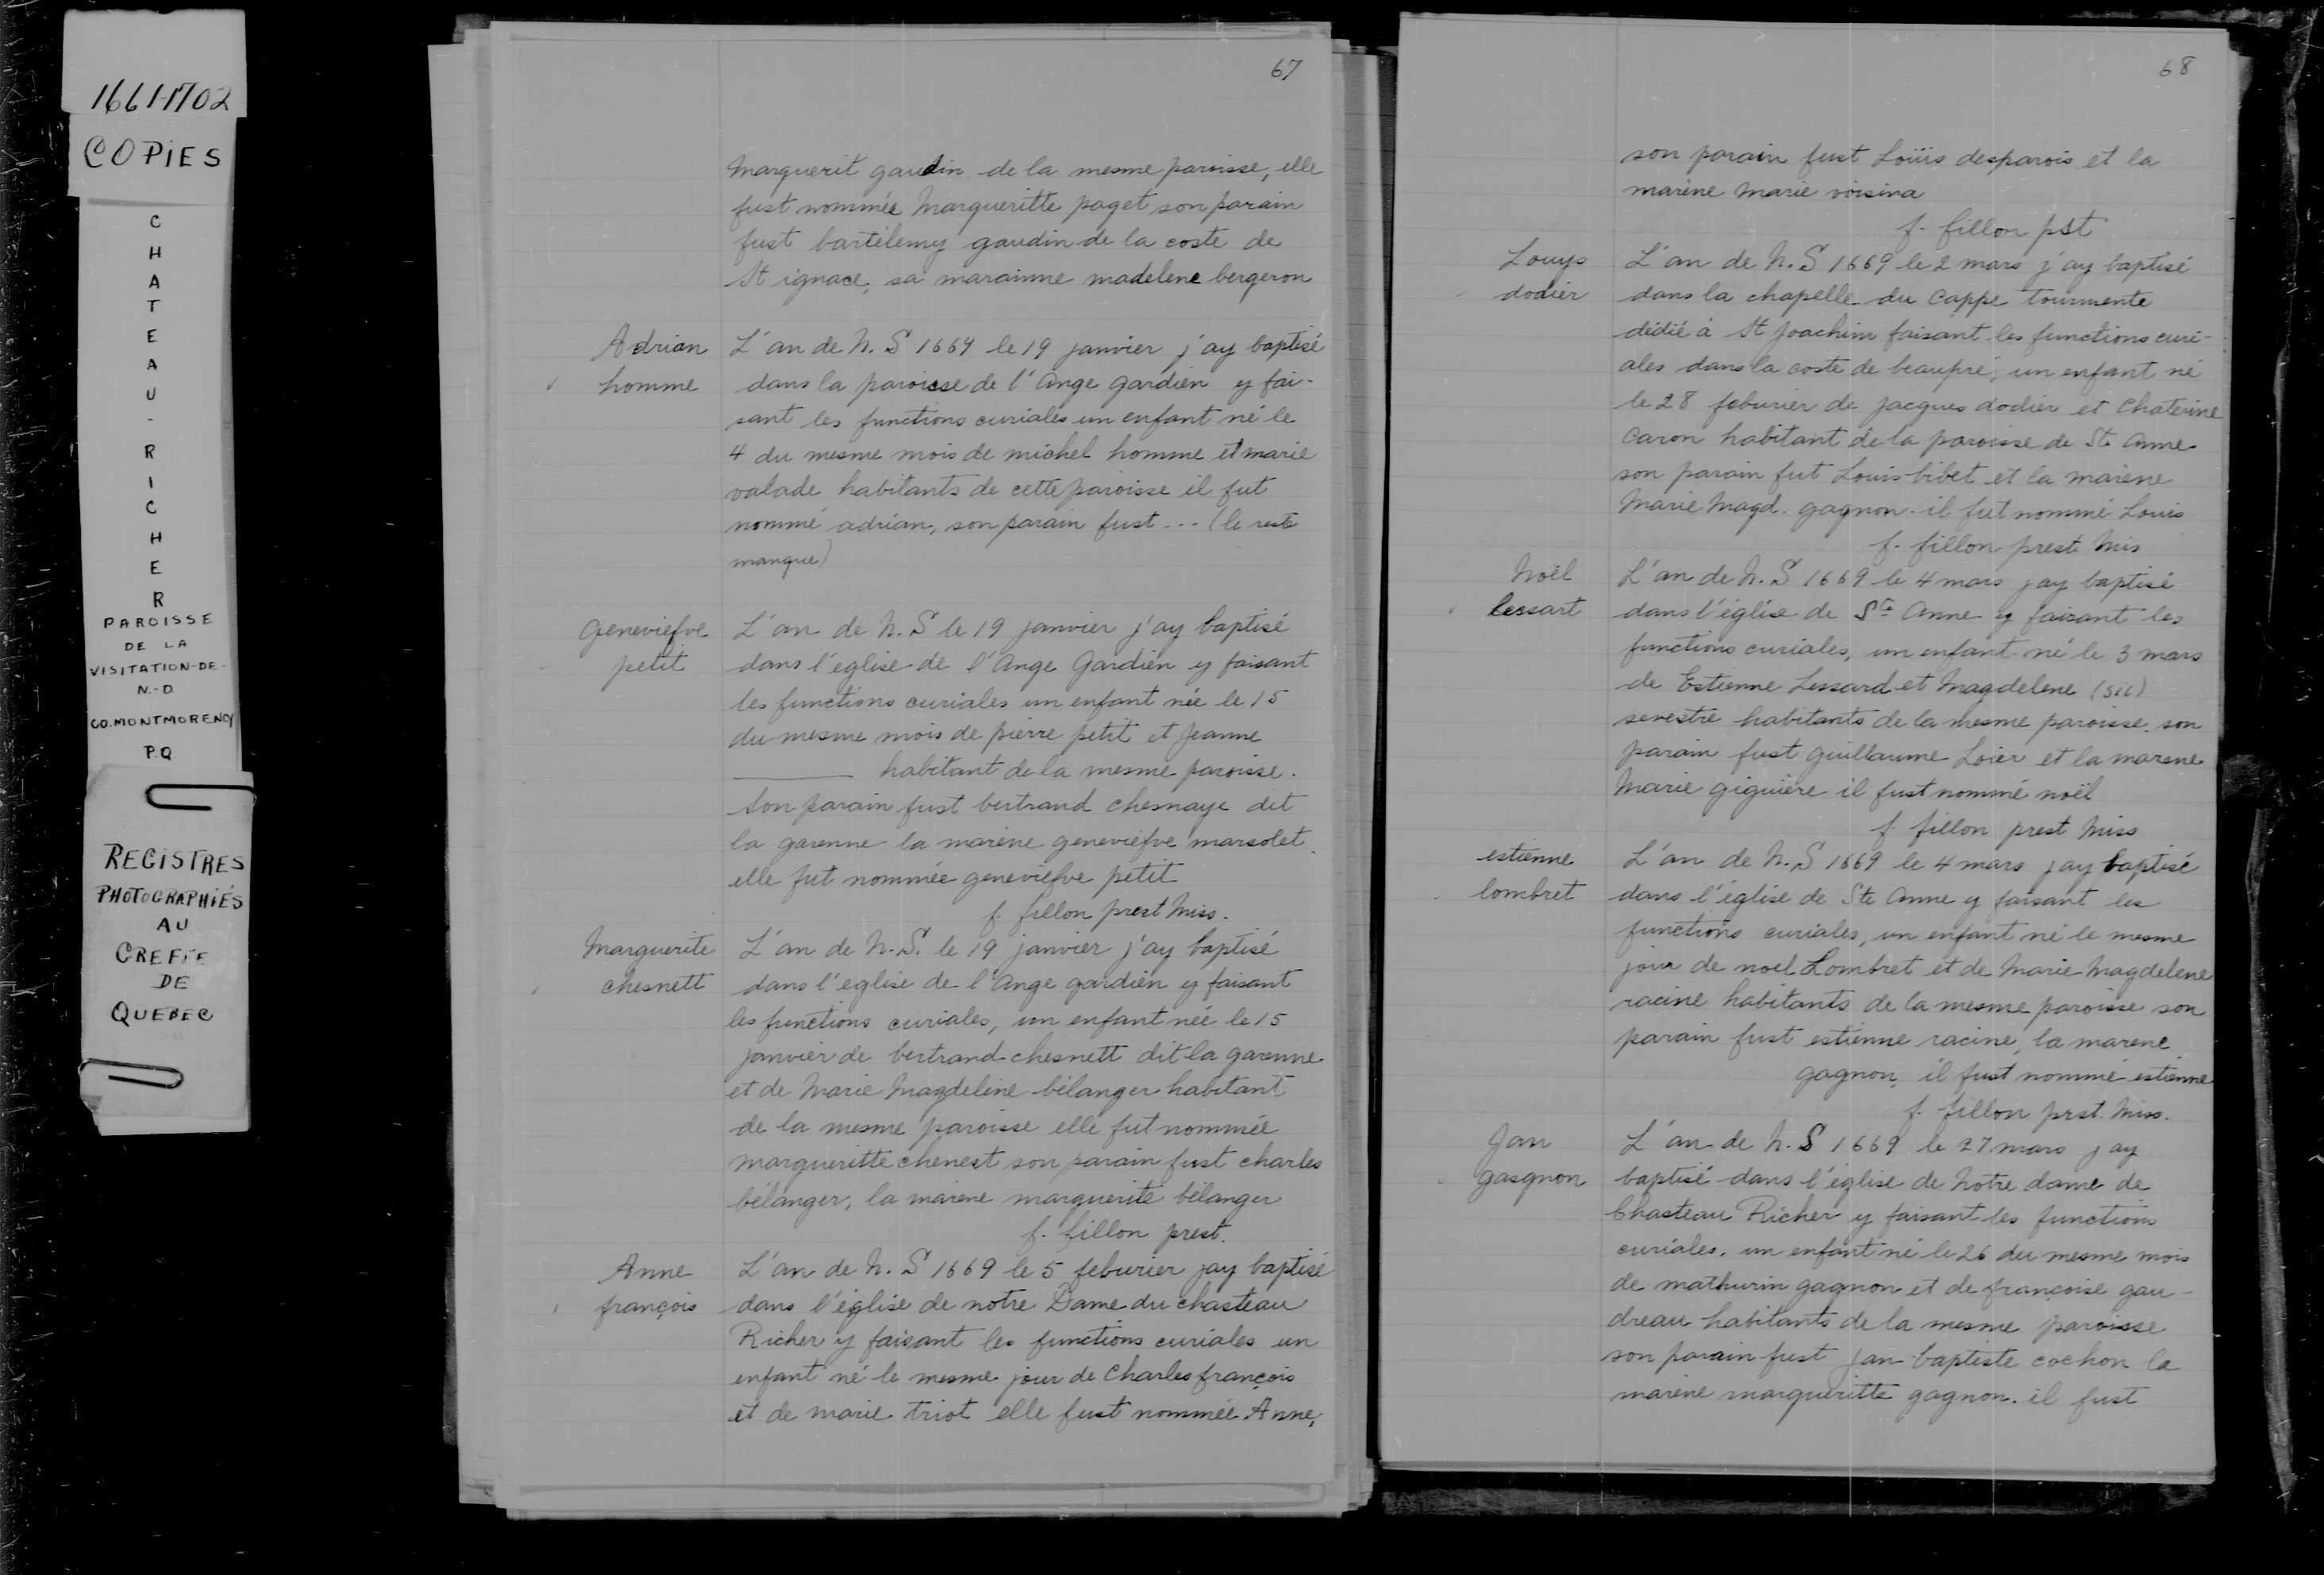 1661-1702
COPIES
CHATEAU-RICHER
PAROISSE
DE LA
VISITATION-DE-
N.-D
CO. MONTMORENCY
P.Q
REGISTRES
PHOTOGRAPHIÉS
AU
GREFFE
DE
QUEBEC
67
Marguerit gaudin de la mesme paroisse, elle
fust nommée Margueritte paget son parain
fust bartélemy gaudin de la coste de
St ignace, sa marainne madelene bergeron
Adrian
homme
L'an de N. S 1669 le 19 janvier j'ay baptisé
dans la paroisse de l'Ange gardien y fai-
sant les functions curiales un enfant né le
4 du mesme mois de michel homme et marie
valade habitants de cette paroisse il fut
nommé adrian, son parain fust --- (le reste
manque)
Geneviefve
petit
L'an de N. S le 19 janvier j'ay baptisé
dans l'eglise de l'Ange Gardien y faisant
les functions curiales un enfant née le 15
du mesme mois de pierre petit et Jeanne
______ habitant de la mesme paroisse.
Son parain fust bertrand chesnaye dit
la garenne la marène geneviefve marsolet
elle fut nommée geneviefve petit
f. fillon prest Miss.
Marguerite
chesnett
L'an de N. S. le 19 janvier j'ay baptisé
dans l'eglise de l'Ange gardien y faisant
les functions curiales, un enfant née le 15
janvier de bertrand chesnett dit la garenne
et de Marie Magdeleine bélanger habitant
de la mesme paroisse elle fut nommée
margueritte chenest son parain fust charles
bélanger, la marène marguerite bélanger
f. fillon prest.
Anne
françois
L'an de N. S 1669 le 5 feburier jay baptisé
dans l'église de notre Dame du chasteau
Richer y faisant les functions curiales un
enfant né le mesme jour de Charles françois
et de marie triot elle fust nommée Anne,
68
son parain fust Loüis desparois et la
marène Marie voisina
f. fillon pst
Louys
dodier
L'an de N. S 1669 le 2 mars j'ay baptisé
dans la chapelle du Cappe tourmente
dédié à St Joachim faisant les functions curi-
ales dans la coste de beaupré, un enfant né
le 28 feburier de jacques dodier et Chaterine
Caron habitant de la paroisse de Ste Anne
son parain fut Louis bibet et la marène
Marie Magd. gagnon. il fut nommé Louis
f. fillon prest Mis
Noël
lessart
L'an de N. S 1669 le 4 mars jay baptisé
dans l'église de Ste Anne y faisant les
functions curiales, un enfant né le 3 mars
de Estienne Lessard et Magdelene (sic)
sevestre habitants de la mesme paroisse. son
parain fust guillaume Loier et la marene
Marie giguière il fust nommé noël
f. fillon prest Miss
estienne
lombret
L'an de N. S 1669 le 4 mars jay baptisé
dans l'église de Ste Anne y faisant les
functions curiales, un enfant né le mesme
jour de noel Lombret et de Marie Magdelene
racine habitants de la mesme paroisse son
parain fust estienne racine, la marene
gagnon, il fust nommé estienne
f. fillon prst. Miss.
Jan
gasgnon
L'an de N. S 1669 le 27 mars jay
baptisé dans l'église de Notre dame de
Chasteau Richer y faisant les functions
curiales. un enfant né le 26 du mesme mois
de mathurin gagnon et de françoise gau-
dreau habitants de la mesme paroisse
son parain fust jan baptiste cochon la
marène margueritte gagnon. il fust